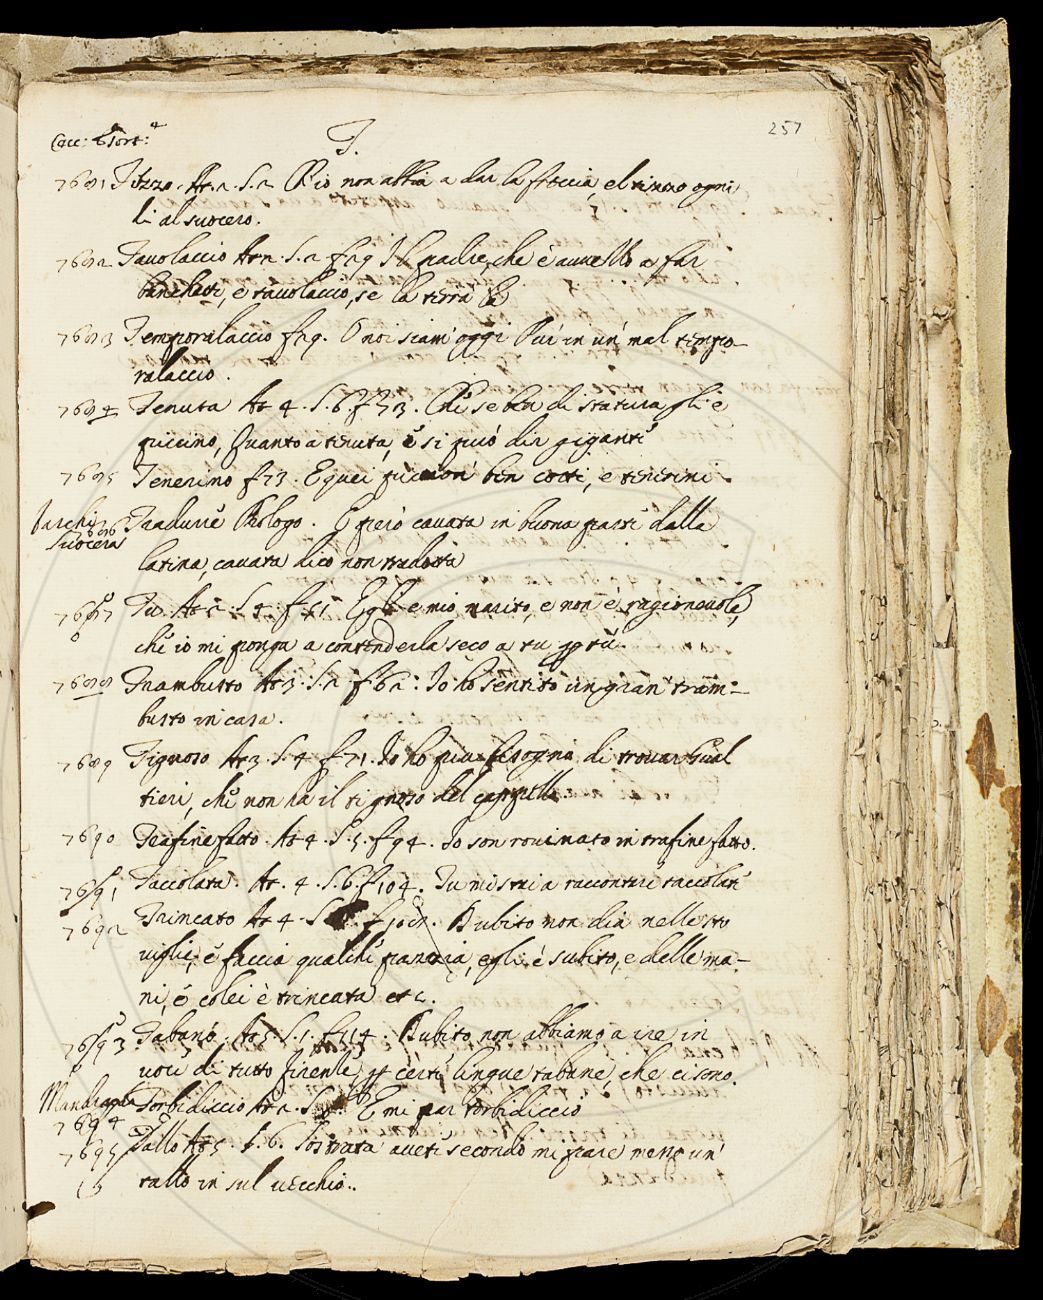 257
T.
7681 Tozzo. At. 2. S. 2 Ch'io non abbia a dar la freccia, e'l tozzo ogni
dì al suocero.
7682 Tavolaccio At. 2. S. 2 f 29 Il padre, che è avvezzo a far
banchetti, e tavolaccio, se la terrà
7683 Temporalaccio f 29. O noi siam'oggi Pur in un' mal tempo-
ralaccio.
7684 Tenuta At 4. S. 6. f 73. Che se ben di statura gli è
piccino, Quanto a tenuta, e' si può dir gigante
7685 Tenerino f 73. E quei piccion' ben cotti, e tenerini
Suocera
7686 Tradurre Prologo. E però cavata in buona parte dalla
latina, cavata dico non tradotta
7687 Tu. At 2. S. 4. f 41 Egli è mio marito, e non è ragionevole,
che io mi ponga a contenderla seco a tu per tu.
7688 Trambusto At 3. S. 2 f 62. Io ho sentito un gran tram-
busto in casa.
7689 Tignoso At 3. S. 4 f 71. Io ho più bisogno di trovar Gual
tieri, che non ha il tignoso del cappello
7690 Trafinefatto. At 4. S. 5. f 94. Io son rovinato in trafinefatto.
7691 Taccolata. At. 4. S. 6. f 104. Tu mi stai a raccontare taccolate
7692 Trincato At 4. S. Dubito non dia nelle sto
viglie, e faccia qualche pazzia, egli è subito, e delle ma-
ni, e colei è trincata etc.
7693 Tabano. At 5. S. 1. f 114. Dubito non abbiamo a ire in
voce di tutto Firenze per certe lingue tabane, che ci sono.
Mandragola
7694 Torbidiccio At 2. S. E mi par torbidiccio
7695 Tallo At 5. S. 6. avete secondo mi pare messo un'
tallo in sul vecchio.